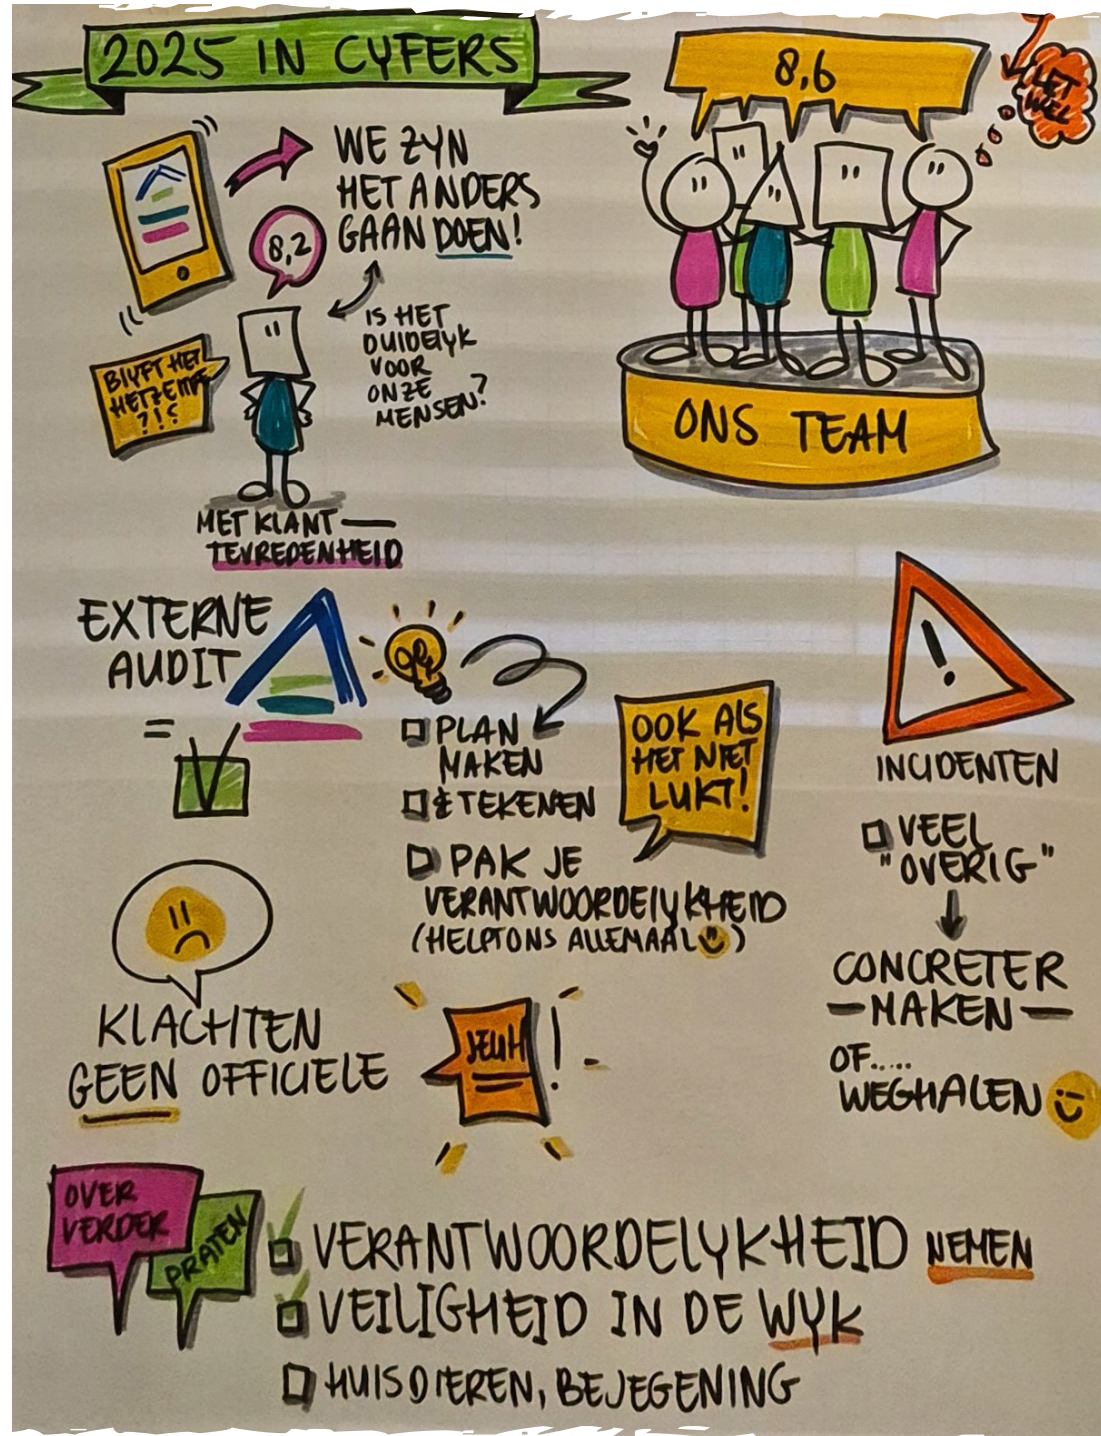 2025 IN CYFERS
8,6
HET
WEL
WE ZYN
HET ANDERS
GAAN DOEN!
8,2
IS HET
DUIDELYK
VOOR
ONZE
MENSEN?
BLYFT HET
HETZELFDE
?!?
MET KLANT—
TEVREDENHEID
ONS TEAM
EXTERNE
AUDIT
=
PLAN
MAKEN
& TEKENEN
PAK JE
VERANTWOORDELYKHEID
(HELPT ONS ALLEMAAL)
OOK ALS
HET NIET
LUKT!
INCIDENTEN
VEEL
"OVERIG"
CONCRETER
—MAKEN—
OF.....
WEGHALEN
KLACHTEN
GEEN OFFICIELE
JEUH
!
OVER
VERDER
PRATEN
VERANTWOORDELYKHEID NEMEN
VEILIGHEID IN DE WYK
HUISDIEREN, BEJEGENING